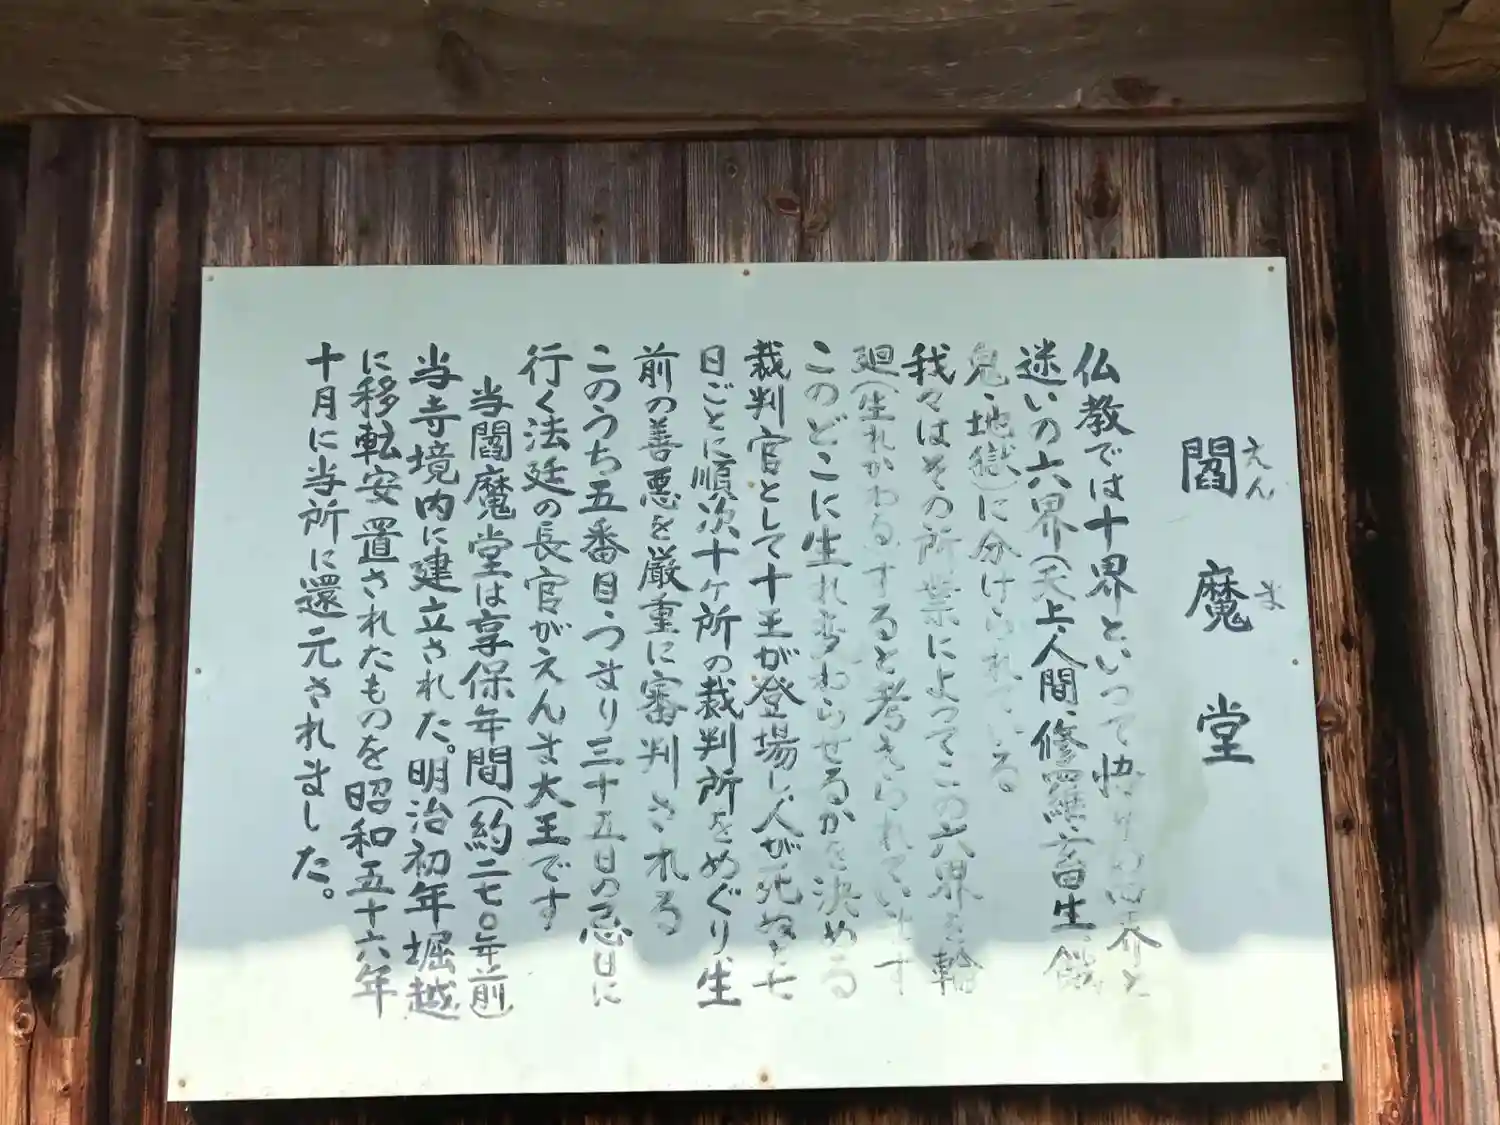 閻魔堂
えんま
仏教では十界といって悟りの四界と
迷いの六界(天上、人間、修羅、畜生、餓
鬼、地獄)に分けられている
我々はその所業によってこの六界を輪
廻(生れかわる)すると考えられています
このどこに生れ変わらせるかを決める
裁判官として十王が登場し、人が死ぬと七
日ごとに順次十ヶ所の裁判所をめぐり、生
前の善悪を厳重に審判される
このうち五番目、つまり三十五日の忌日に
行く法廷の長官がえんま大王です
当閻魔堂は享保年間(約二七〇年前)
当寺境内に建立された。明治初年堀越
に移転安置されたものを昭和五十六年
十月に当所に還元されました。